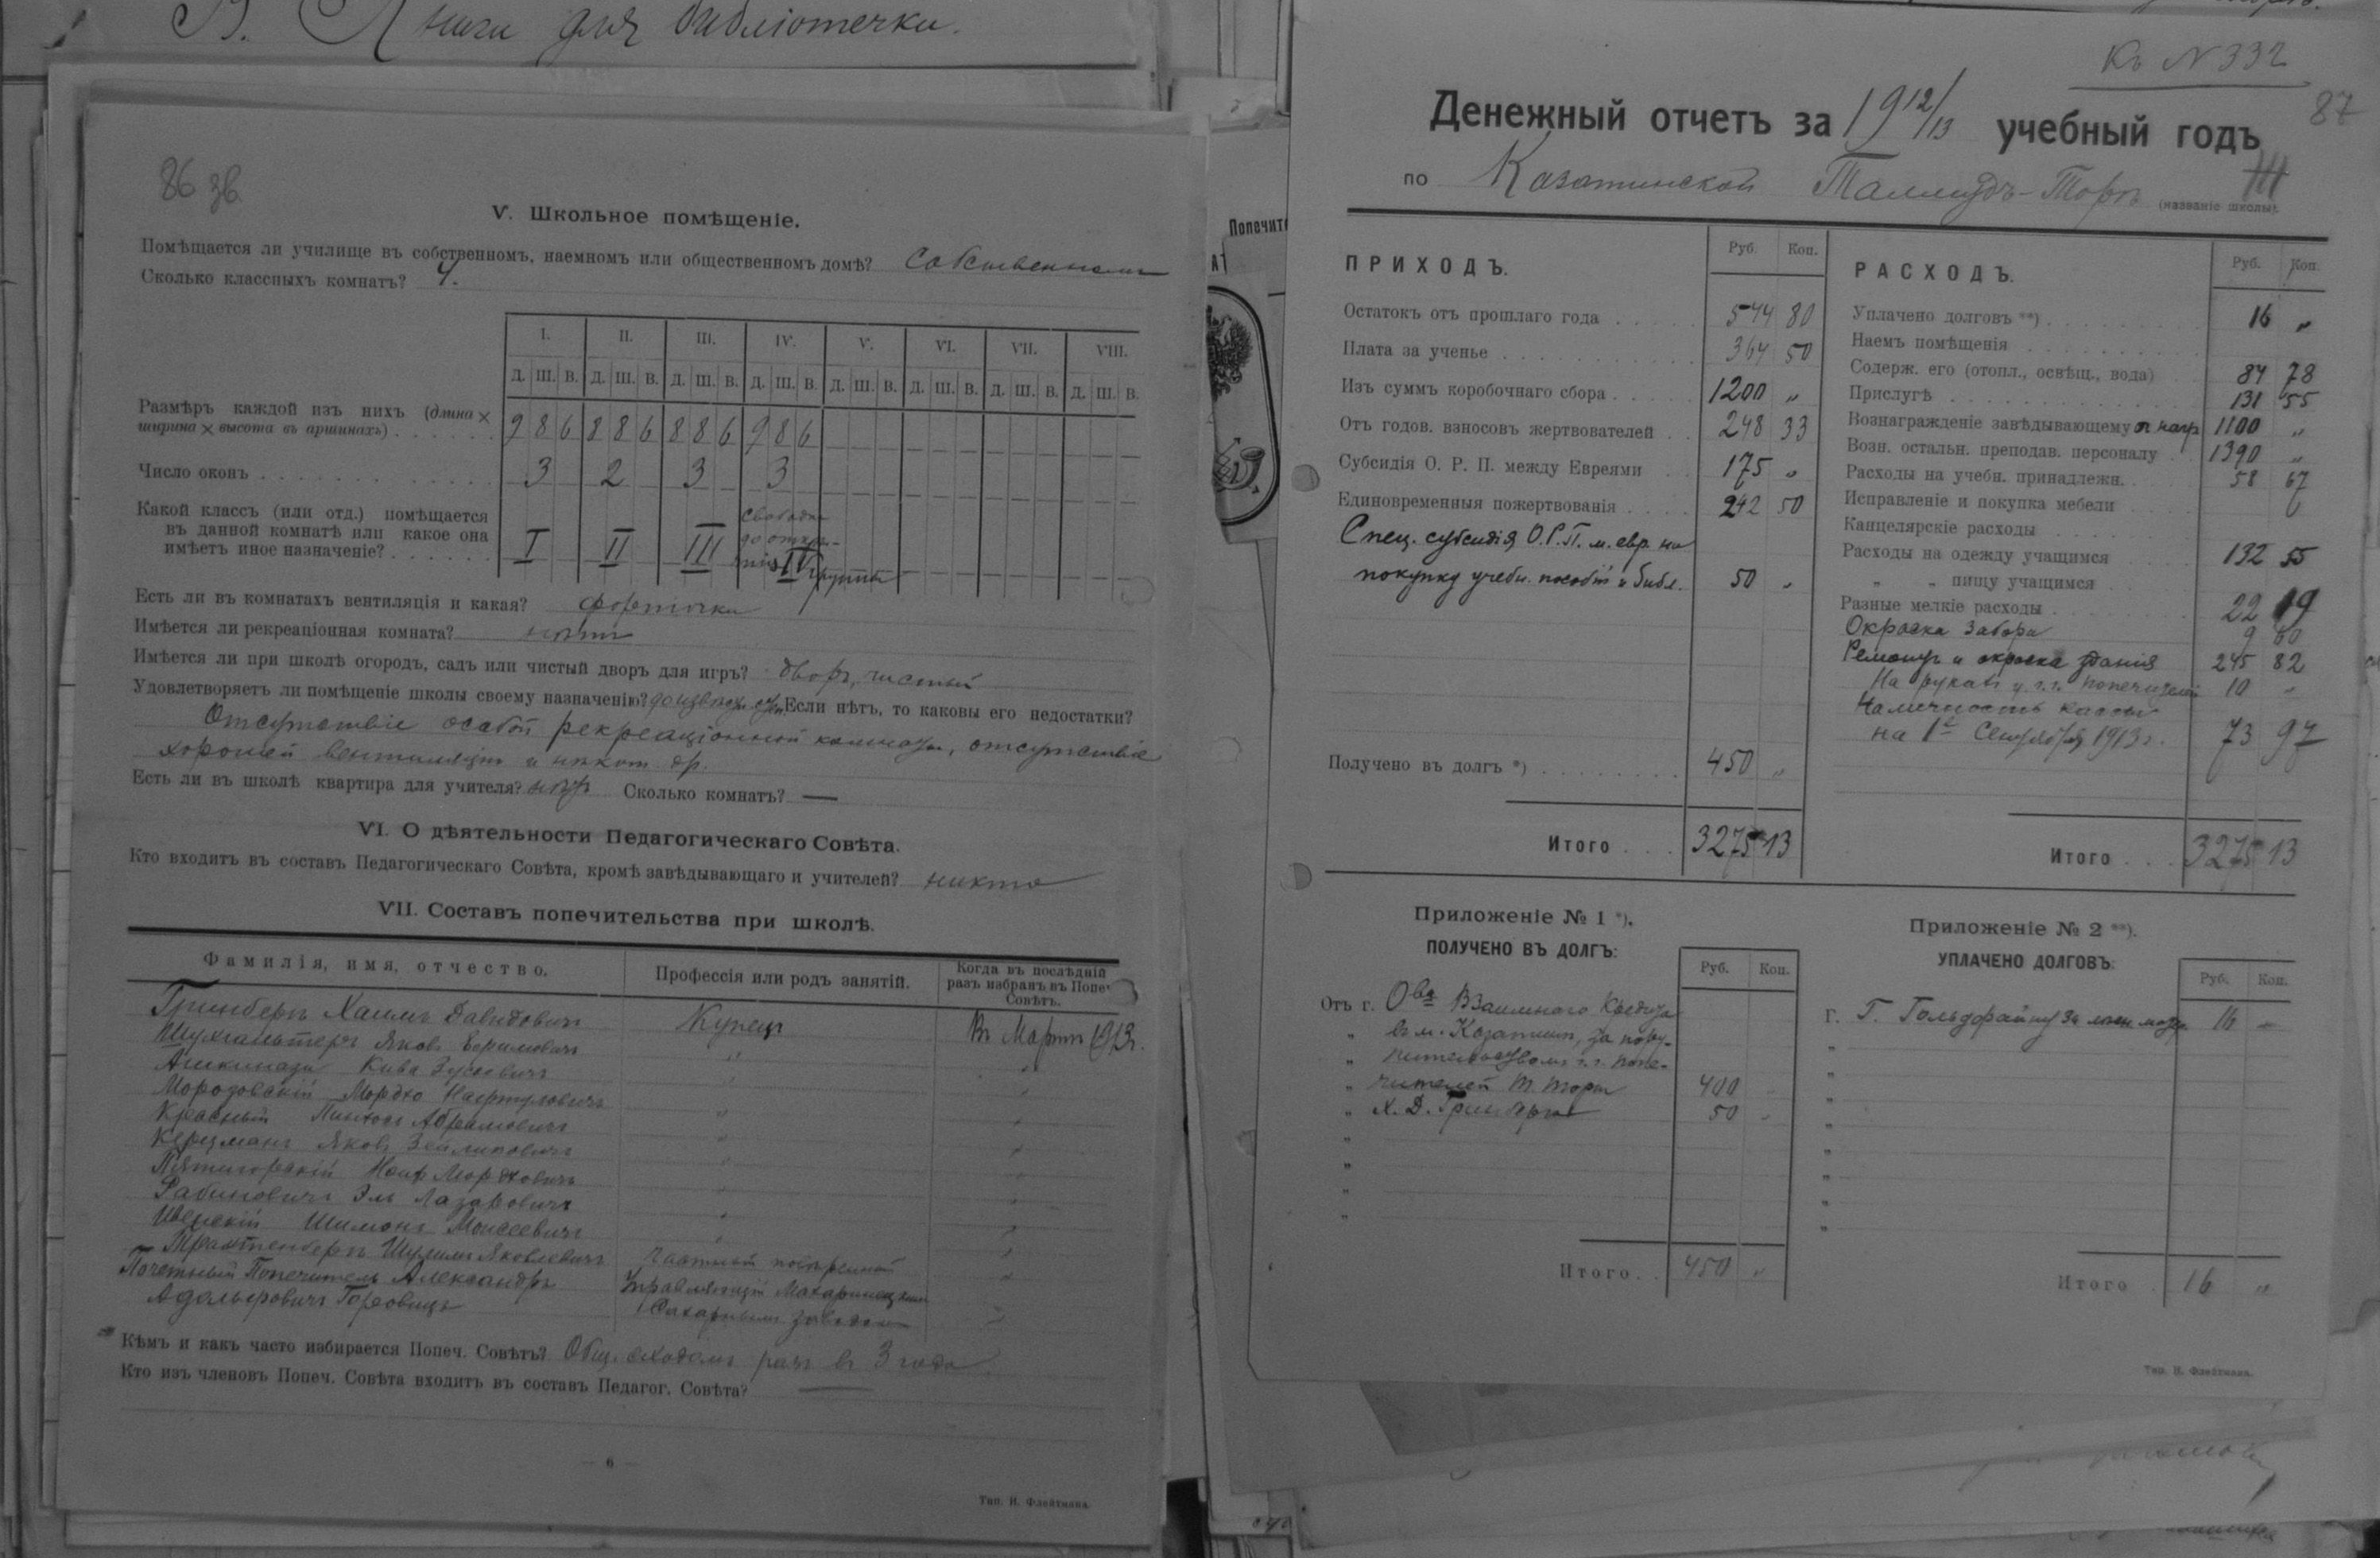 В. Книги для библіотечки.
86 зв.
V. Школьное помѣщеніе.
Помѣщается ли училище въ собственномъ, наемномъ или общественномъ домѣ? собственномъ
Сколько классныхъ комнатъ? 4.
I. II. III. IV. V. VI. VII. VIII.
Д. Ш. В. Д. Ш. В. Д. Ш. В. Д. Ш. В. Д. Ш. В. Д. Ш. В. Д. Ш. В. Д. Ш. В.
Размѣръ каждой изъ нихъ (длина ×
ширина × высота въ аршинахъ) . . . . . . 9 8 6 8 8 6 8 8 6 9 8 6
Число оконъ . . . . . . . . . . . . . 3 2 3 3
Какой классъ (или отд.) помѣщается
въ данной комнатѣ или какое она
имѣетъ иное назначеніе? . . . . . . I II III свободна до откры- тія IV группы
Есть ли въ комнатахъ вентиляція и какая? форточки
Имѣется ли рекреаціонная комната? нѣтъ
Имѣется ли при школѣ огородъ, садъ или чистый дворъ для игръ? дворъ, чистый
Удовлетворяетъ ли помѣщеніе школы своему назначенію? до извѣстн. степ. Если нѣтъ, то каковы его недостатки?
Отсутствіе особой рекреаціонной комнаты, отсутствіе
хорошей вентиляціи и нѣкот. др.
Есть ли въ школѣ квартира для учителя? нѣтъ Сколько комнатъ? —
VI. О дѣятельности Педагогическаго Совѣта.
Кто входитъ въ составъ Педагогическаго Совѣта, кромѣ завѣдывающаго и учителей? никто
VII. Составъ попечительства при школѣ.
Фамилія, имя, отчество. Профессія или родъ занятій. Когда въ послѣдній разъ избранъ въ Попеч. Совѣтъ.
Гринбергъ Хаимъ Давидовичъ Купецъ Въ Мартѣ 1913г.
Яковъ " "
Ашкинази Кива " "
Морозовскій Мордко " "
Красный Пинхосъ Абрамовичъ " "
Керцманъ Яковъ Зейликовичъ " "
Пятигорскій Мордковичъ " "
Рабиновичъ Эль Лазаровичъ " "
Шимонъ Моисеевичъ " "
Трахтенбергъ Шулимъ Яковлевичъ частный повѣренный "
Почетный Попечитель Александръ Управляющій Махаринецкимъ "
Адольфовичъ Горовицъ Сахарнымъ заводомъ "
Кѣмъ и какъ часто избирается Попеч. Совѣтъ? Общ. сходомъ разъ въ 3 года
Кто изъ членовъ Попеч. Совѣта входитъ въ составъ Педагог. Совѣта? —
— 6 —
Тип. И. Флейтмана.
Попечит
Къ N 332
87
Денежный отчетъ за 1912/13 учебный годъ
по Казатинской Талмудъ-Торѣ (названіе школы).
ПРИХОДЪ. Руб. Коп.
Остатокъ отъ прошлаго года . . . . . 544 80
Плата за ученье . . . . . . . . . . . 364 50
Изъ суммъ коробочнаго сбора . . . . . 1200 „
Отъ годов. взносовъ жертвователей . . 248 33
Субсидія О. Р. П. между Евреями . . 175 „
Единовременныя пожертвованія . . . . 242 50
Спец. субсидія О.Р.П. м. евр. на
покупку учебн. пособій и библ. 50 „
Получено въ долгъ *) . . . . . . . . 450 „
Итого . . . 3275 13
РАСХОДЪ. Руб. Коп.
Уплачено долговъ **) . . . . . . . . 16 „
Наемъ помѣщенія . . . . . . . . .
Содерж. его (отопл., освѣщ., вода) . 84 78
Прислугѣ . . . . . . . . . . . . . . 131 55
Вознагражденіе завѣдывающему 1100 „
Возн. остальн. преподав. персоналу . . 1390 „
Расходы на учебн. принадлежн. . . . . 58 67
Исправленіе и покупка мебели . . . .
Канцелярскіе расходы . . . .
Расходы на одежду учащимся . . . 132 55
„ „ пищу учащимся . . .
Разные мелкіе расходы . . . . . . . . 22 19
Окраска забора 9 60
Ремонтъ и окраска зданія 245 82
На рукахъ у г.г. попечителей 10 „
Наличность кассы
на 1е Сентября 1913г. 73 97
Итого . . . 3275 13
Приложеніе № 1 *).
ПОЛУЧЕНО ВЪ ДОЛГЪ:
Руб. Коп.
Отъ г. О-ва Взаимнаго Кредита
„ въ м. Казатинѣ, за пору-
„ чительствомъ г.г. попе-
„ чителей Т. Торы 400 „
„ Х. Д. Гринберга 50 „
Итого . . 450 „
Приложеніе № 2 **).
УПЛАЧЕНО ДОЛГОВЪ:
Руб. Коп.
Г. Г. Гольдфайну за 16 „
Итого . 16 „
Тип. И. Флейтмана.